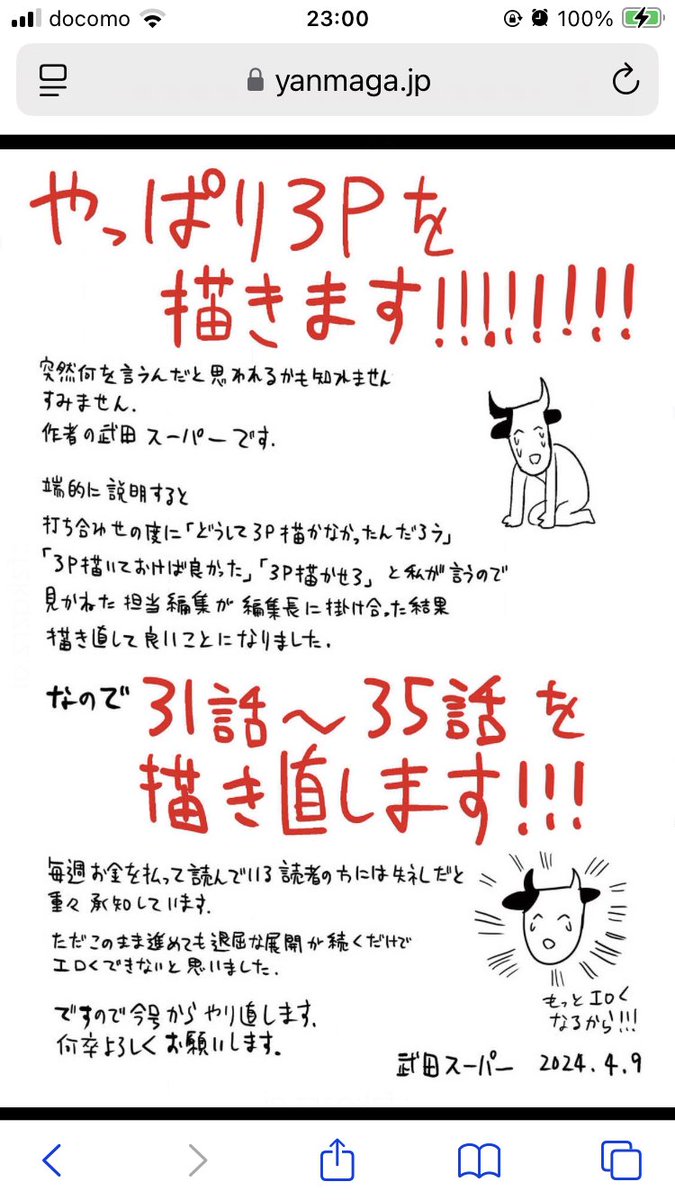 docomo 23:00 100%
yanmaga.jp
やっぱり3Pを
描きます!!!!!!!!!
突然何を言うんだと思われるかも知れません
すみません.
作者の武田スーパーです.
端的に説明すると
打ち合わせの度に「どうして3P描かなかったんだろう」
「3P描いておけば良かった」「3P描かせろ」と私が言うので
見かねた担当編集が編集長に掛け合った結果
描き直して良いことになりました.
なので 31話～35話を
描き直します!!!
毎週お金を払って読んでいる読者の方には失礼だと
重々承知しています.
ただこのまま進めても退屈な展開が続くだけで
エロくできないと思いました.
もっとエロく
なるから!!!
ですので今号からやり直します.
何卒よろしくお願いします.
武田スーパー 2024.4.9